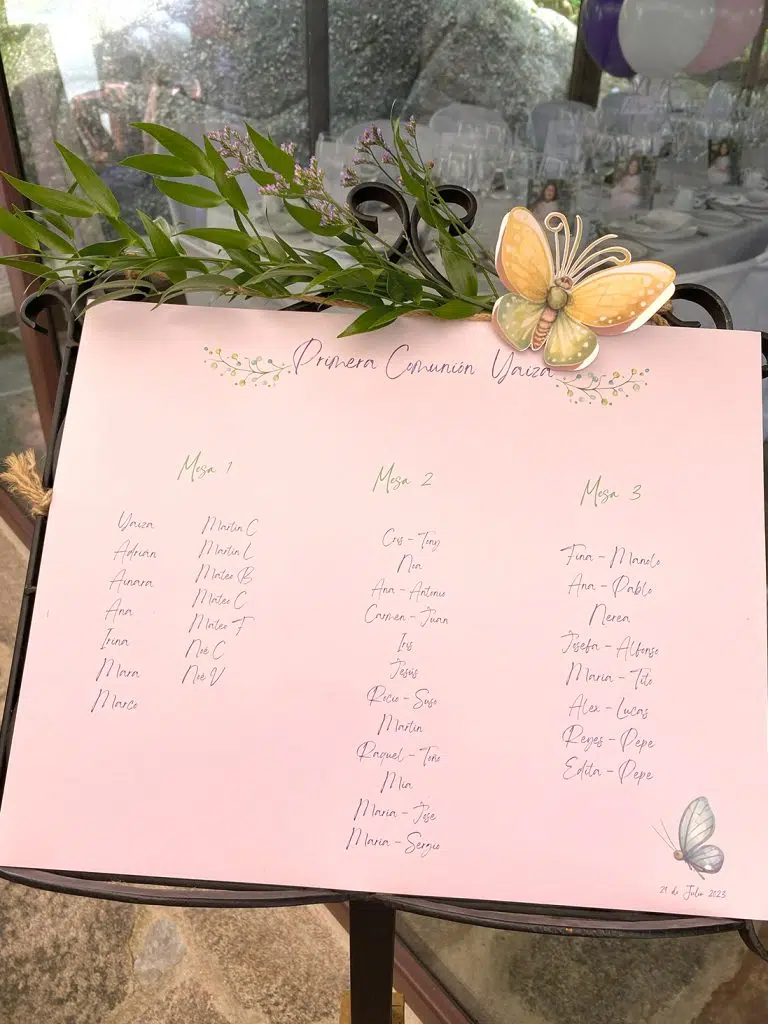 Primera Comunión Yaiza
Mesa 1
Yaiza
Adrian
Ainara
Ana
Irina
Mara
Marco
Martin C
Martin L
Mateo B
Mateo C
Mateo F
Noé C
Noé V
Mesa 2
Cris - Tony
Noa
Ana - Antonio
Carmen - Juan
Iris
Jesús
Rocio - Suso
Martin
Raquel - Toño
Mia
Maria - Jose
Maria - Sergio
Mesa 3
Fina - Manolo
Ana - Pablo
Nerea
Josefa - Alfonso
Maria - Tito
Alex - Lucas
Reyes - Pepe
Edita - Pepe
de Julio 2023